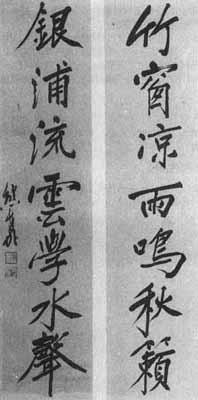 竹窗凉雨鳴秋籟
銀浦流雲學水聲